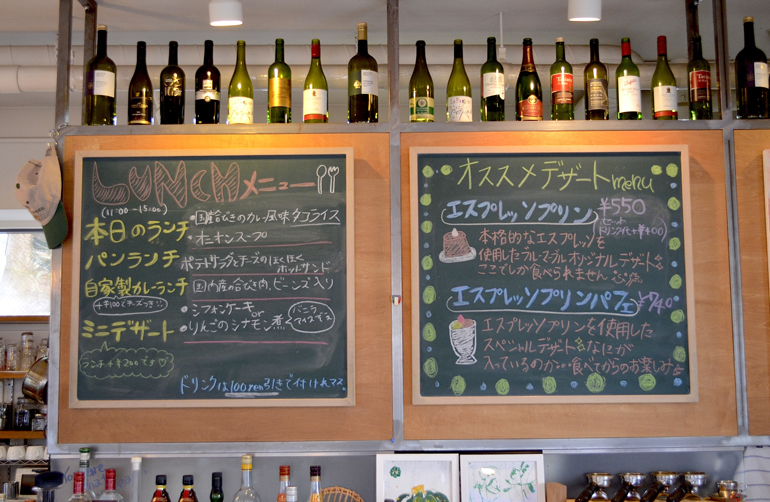 LUNCH メニュー
(11:00~15:00)
本日のランチ
・国産合びきのカレー風味タコライス
・オニオンスープ
パンランチ
ポテトサラダとチーズのほくほく
ホットサンド
自家製カレーランチ
国内産の合びき肉、ビーンズ入り
+¥100でチーズつき
ミニデザート
・シフォンケーキ
or
・りんごのシナモン煮
バニラ
アイス添え
ランチ+¥200です♡
ドリンクは100yen引きで付けれマス
オススメデザートmenu
エスプレッソプリン
¥550
(セット
ドリンク代+¥400)
本格的なエスプレッソを
使用したオリジナルデザート
ここでしか食べられません
エスプレッソプリンパフェ
¥740
エスプレッソプリンを使用した
スペシャルデザート なにが
入っているのか…食べてからのお楽しみ